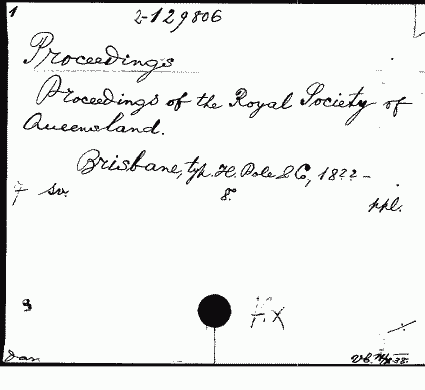 1 2-129806
Proceedings
Proceedings of the Royal Society of
Queensland.
Brisbane, typ. H. Pole & Co, 18??-
7 sv. 8° ppl.